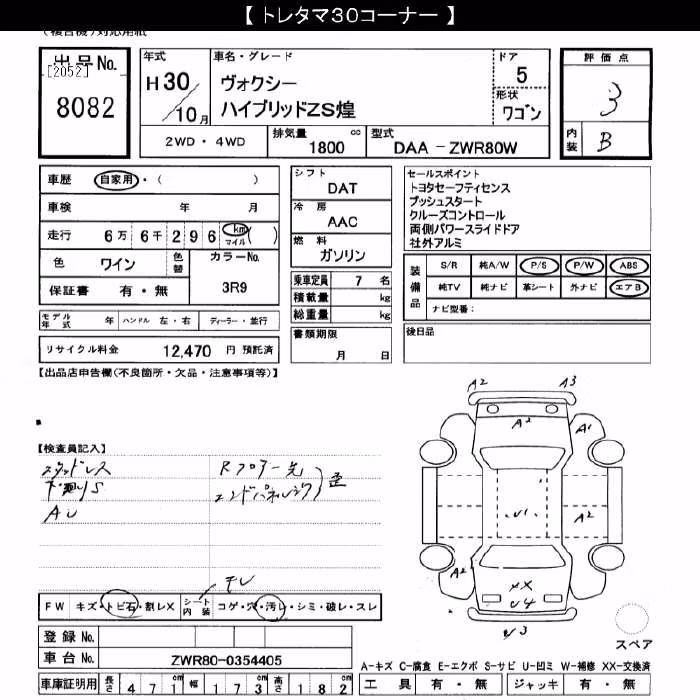 【 トレタマ30コーナー 】
(複合機)対応用紙
出品No. [2052] 8082
年式 H30/10月
車名・グレード ヴォクシー
ハイブリッドZS煌
ドア 5
形状 ワゴン
評価点 3
内装 B
2WD・4WD 排気量 1800 cc 型式 DAA - ZWR80W
車歴 自家用・( )
車検 年 月
走行 6万 6千 2 9 6 km マイル ( )
色 ワイン 色替 カラーNo. 3R9
保証書 有・無
モデル年式 年 ハンドル 左・右 ディーラー・並行
リサイクル料金 12,470 円 預託済
シフト DAT
冷房 AAC
燃料 ガソリン
乗車定員 7 名
積載量 kg
総重量 kg
書類期限 月 日
セールスポイント
トヨタセーフティセンス
プッシュスタート
クルーズコントロール
両側パワースライドドア
社外アルミ
装備品 S/R 純A/W P/S P/W ABS
純TV 純ナビ 革シート 外ナビ エアB
ナビ型番:
後日品
【出品店申告欄(不良箇所・欠品・注意事項等)】
【検査員記入】
スタッドレス
下廻りS
AU
Rフロアー先
エンドパネル
歪
A2 A3
A2 A1
U1 A2
A2
XX
U4
U3
FW キズ・トビ石・割レX シート内装 コゲ・穴・汚レ・シミ・破レ・スレ
登録No.
車台No. ZWR80-0354405
車庫証明用 長さ 471cm 幅 173cm 高さ 182cm
スペア
A-キズ C-腐食 E-エクボ S-サビ U-凹ミ W-補修 XX-交換済
工具 有・無 ジャッキ 有・無